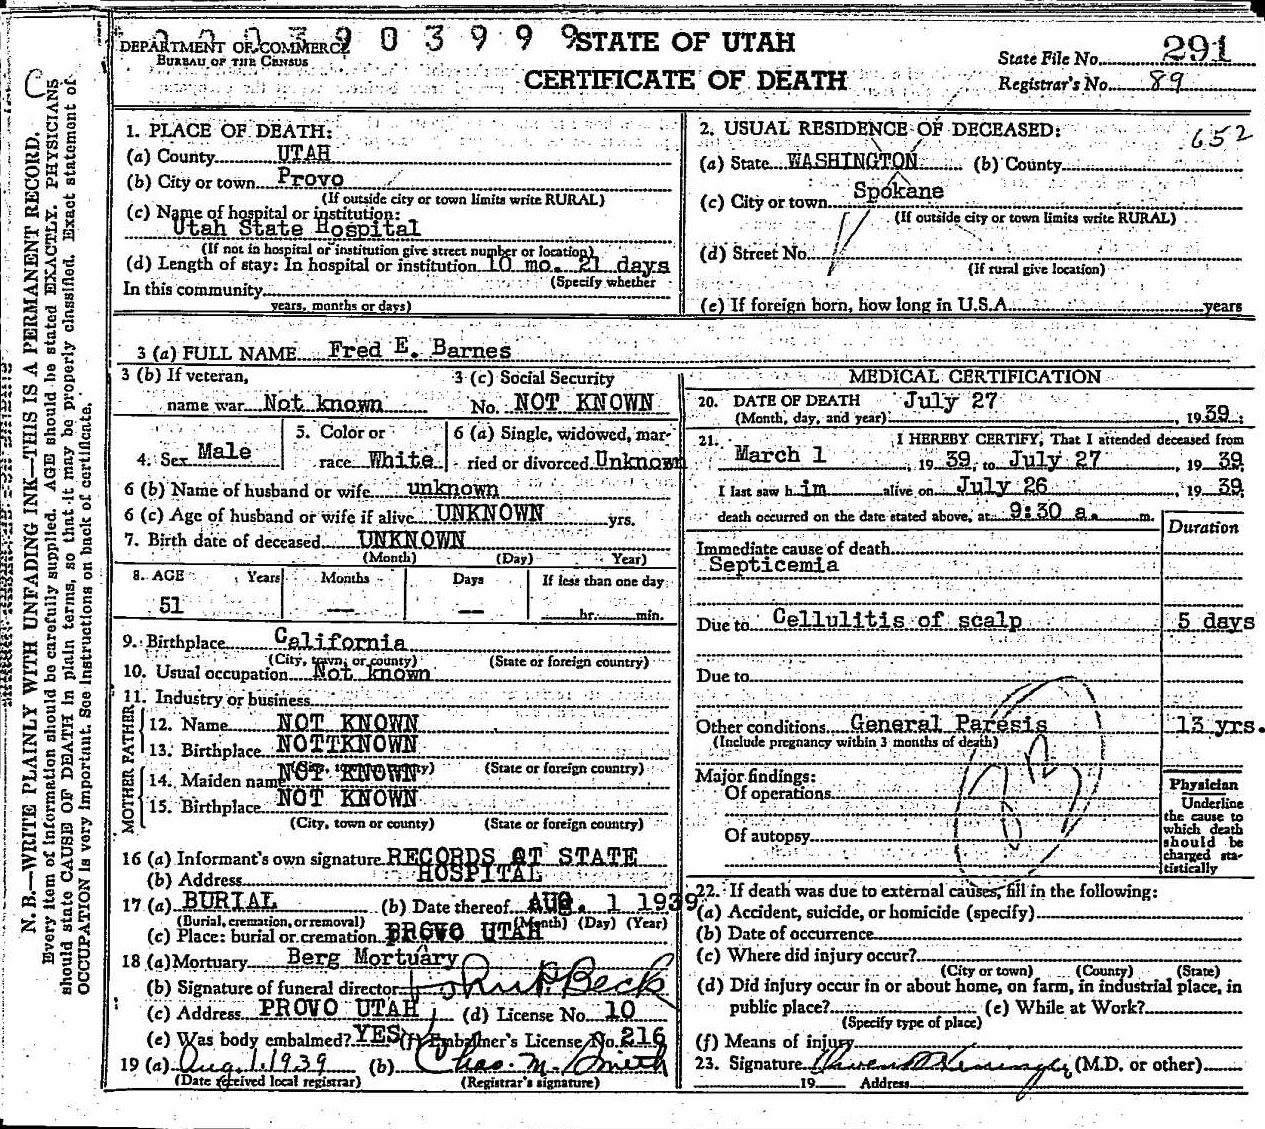 0 3 9 9 9 STATE OF UTAH
DEPARTMENT OF COMMERCE
BUREAU OF THE CENSUS
CERTIFICATE OF DEATH
State File No. 291
Registrar's No. 89
C
N. B.—WRITE PLAINLY WITH UNFADING INK—THIS IS A PERMANENT RECORD.
Every item of information should be carefully supplied. AGE should be stated EXACTLY. PHYSICIANS
should state CAUSE OF DEATH in plain terms, so that it may be properly classified. Exact statement of
OCCUPATION is very important. See instructions on back of certificate.
1. PLACE OF DEATH:
(a) County UTAH
(b) City or town Provo
(If outside city or town limits write RURAL)
(c) Name of hospital or institution:
Utah State Hospital
(If not in hospital or institution give street number or location)
(d) Length of stay: In hospital or institution 10 mo. 21 days
(Specify whether
In this community
years, months or days)
2. USUAL RESIDENCE OF DECEASED:
652
(a) State WASHINGTON (b) County
(c) City or town Spokane
(If outside city or town limits write RURAL)
(d) Street No.
(If rural give location)
(e) If foreign born, how long in U.S.A. years
3 (a) FULL NAME Fred E. Barnes
3 (b) If veteran, 3 (c) Social Security
name war Not known No. NOT KNOWN
4. Sex Male 5. Color or race White 6 (a) Single, widowed, married or divorced Unknown
6 (b) Name of husband or wife unknown
6 (c) Age of husband or wife if alive UNKNOWN yrs.
7. Birth date of deceased UNKNOWN
(Month) (Day) Year)
8. AGE Years Months Days If less than one day
51 — — hr. min.
9. Birthplace California
(City, town, or county) (State or foreign country)
10. Usual occupation Not known
11. Industry or business
FATHER
12. Name NOT KNOWN
13. Birthplace NOTTKNOWN
(City, town or county) (State or foreign country)
MOTHER
14. Maiden name NOT KNOWN
15. Birthplace NOT KNOWN
(City, town or county) (State or foreign country)
16 (a) Informant's own signature RECORDS AT STATE
(b) Address HOSPITAL
17 (a) BURIAL (b) Date thereof AUG. 1 1939
(Burial, cremation, or removal) (Month) (Day) (Year)
(c) Place: burial or cremation PROVO UTAH
18 (a) Mortuary Berg Mortuary
(b) Signature of funeral director Beck
(c) Address PROVO UTAH (d) License No. 10
(e) Was body embalmed? YES (f) Embalmer's License No. 216
19 (a) Aug. 1. 1939 (b) Chas. M. Smith
(Date received local registrar) (Registrar's signature)
MEDICAL CERTIFICATION
20. DATE OF DEATH July 27
(Month, day, and year) , 1939
21. I HEREBY CERTIFY, That I attended deceased from
March 1 , 19 39, to July 27 , 19 39
I last saw him alive on July 26 , 19 39
death occurred on the date stated above, at 9:30 a. m.
Duration
Immediate cause of death
Septicemia
Due to Cellulitis of scalp 5 days
Due to
Other conditions General Paresis 13 yrs.
(Include pregnancy within 3 months of death)
Major findings:
Of operations
Of autopsy
Physician
Underline
the cause to
which death
should be
charged sta-
tistically
22. If death was due to external causes, fill in the following:
(a) Accident, suicide, or homicide (specify)
(b) Date of occurrence
(c) Where did injury occur?
(City or town) (County) (State)
(d) Did injury occur in or about home, on farm, in industrial place, in
public place? (e) While at Work?
(Specify type of place)
(f) Means of injury
23. Signature (M.D. or other)
19 Address